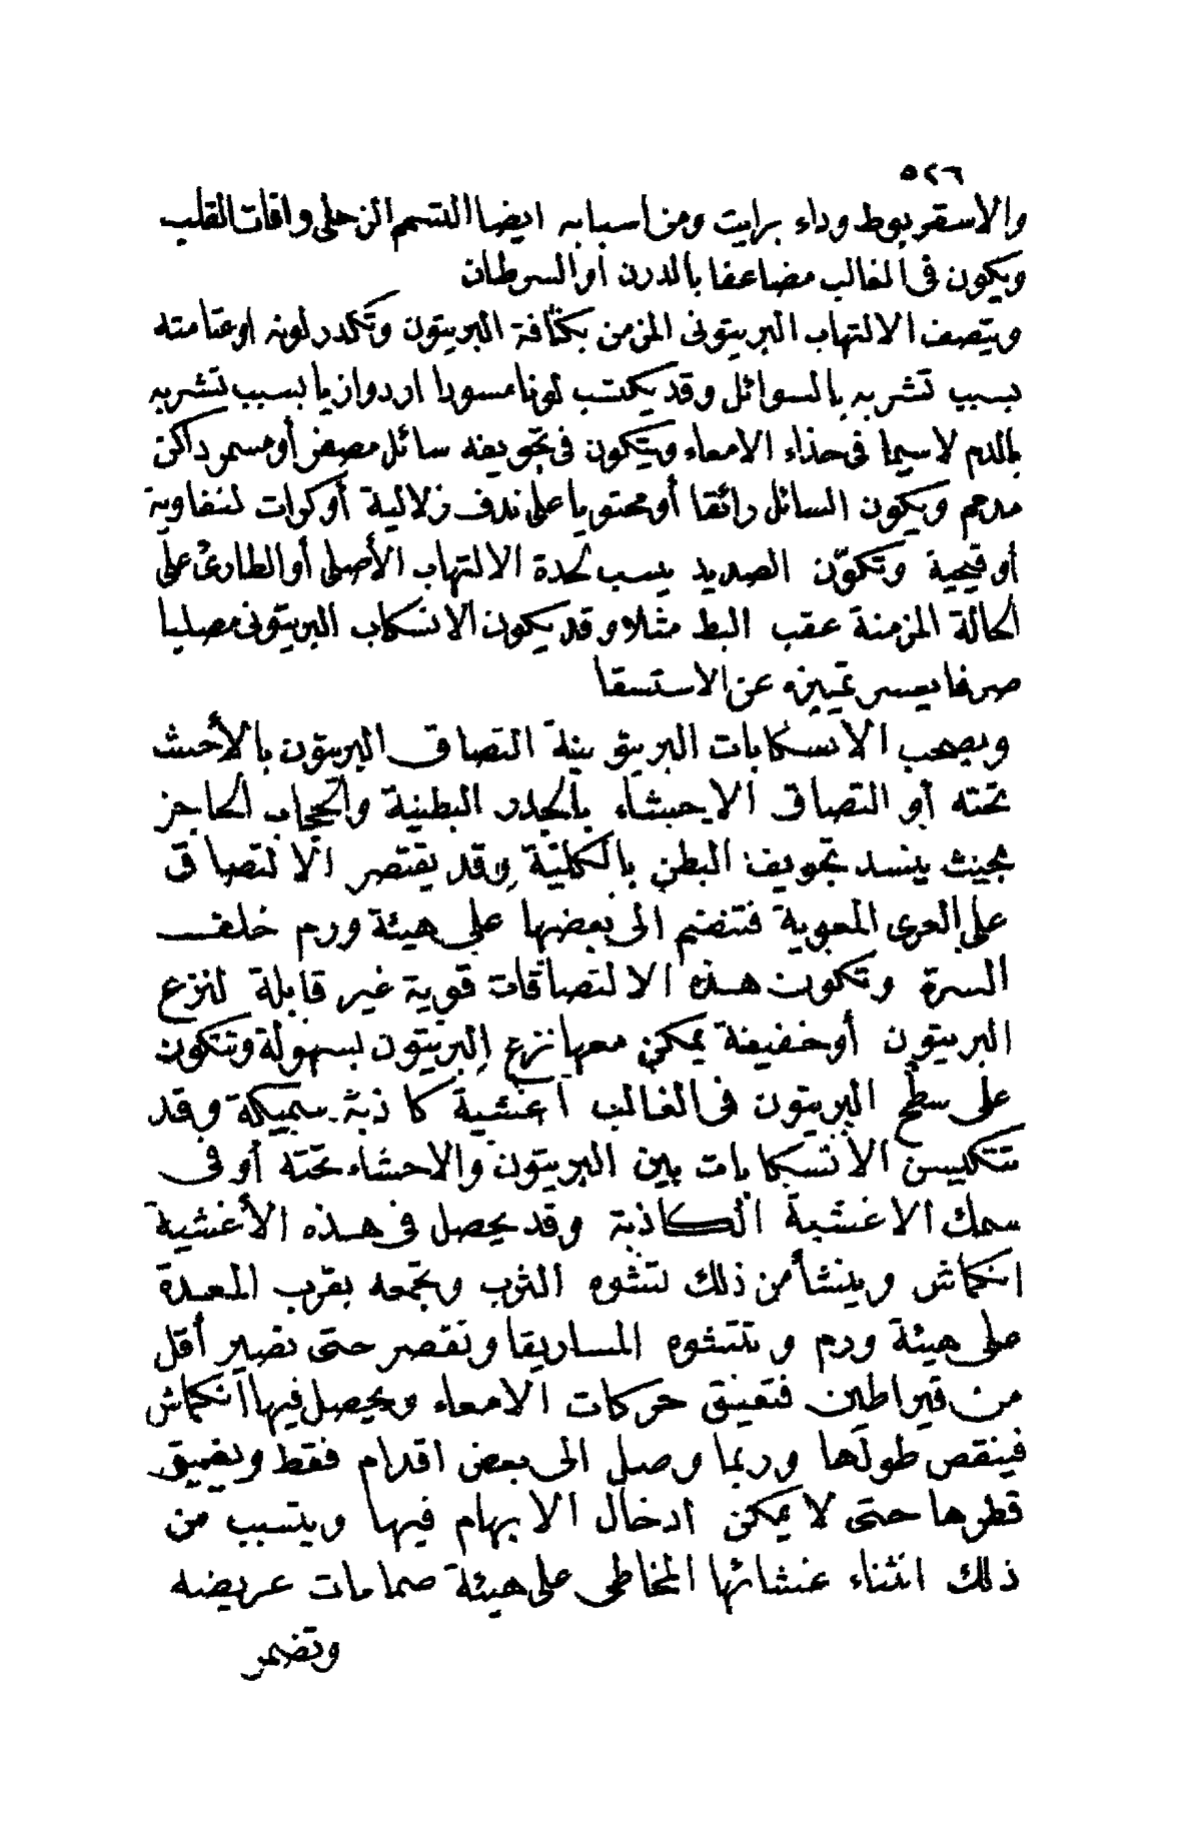 ٥٢٦
والاسقربوط وداء برايت ومن اسبابه ايضا التسمم الزحلى وافات القلب
ويكون فى الغالب مضاعفا بالدرن أو السرطان
ويتصف الالتهاب البريتونى المزمن بكثافة البريتون وتكدر لونه او عتامته
بسبب تشربه بالسوائل وقد يكتسب لونا مسودا اردوازيا بسبب تشربه
بالدم لاسيما فى حذاء الامعاء ويتكون فى تجويفه سائل مصفر أو مسمر داكن
مدمم ويكون السائل رائقا أو محتويا على ندف زلالية أو كرات لنفاوية
أو قيحية وتكوّن الصديد ينسب لحدة الالتهاب الأصلى أو الطارئ على
الحالة المزمنة عقب البط مثلا وقد يكون الانسكاب البريتونى مصليا
صرفا يعسر تمييزه عن الاستسقا
ويصحب الانسكابات البريتونية التصاق البريتون بالأحشا
تحته أو التصاق الاحشاء بالجدر البطنية والحجاب الحاجز
بحيث ينسد تجويف البطن بالكلية وقد يقتصر الالتصاق
على العرى المعوية فتنضم الى بعضها على هيئة ورم خلف
السرة وتكون هذه الالتصاقات قوية غير قابلة لنزع
البريتون أو خفيفة يمكن معها نزع البريتون بسهولة وتتكون
على سطح البريتون فى الغالب أغشية كاذبة سميكة وقد
تتكيس الانسكابات بين البريتون والاحشاء تحته أو فى
سمك الاغشية الكاذبة وقد يحصل فى هذه الأغشية
انكماش وينشأ من ذلك تشوه الثرب وتجمعه بقرب المعدة
على هيئة ورم وتتشوه المساريقا وتقصر حتى تصير أقل
من قيراطين فتعيق حركات الامعاء ويحصل فيها انكماش
فينقص طولها وربما وصل الى بعض اقدام فقط ويضيق
قطرها حتى لا يمكن ادخال الابهام فيها ويتسبب من
ذلك انثناء غشائها المخاطى على هيئة صمامات عريضه
وتضمر